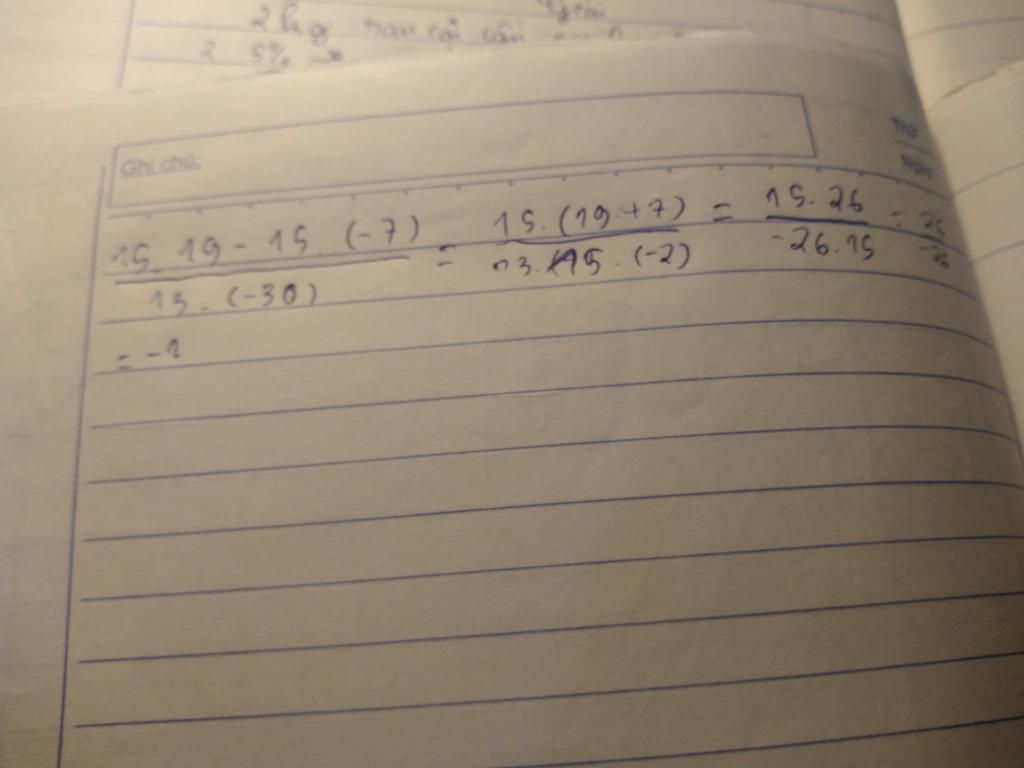 2 kg
2 5%
Ghi chú:
Thứ
Ngày
15. 19 - 15. (-7) / 13. (-30) = 15. (19 + 7) / 13. 15. (-2) = 15. 26 / -26. 15 = 26 / -26
= -1